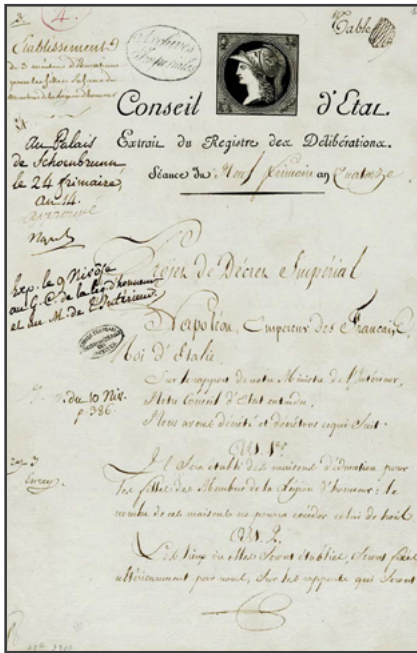 4.
Table
Etablissement de
de 3 maisons d'Education
pour les filles
membres de la légion d'honneur
Archives
Impériales
Conseil d'Etat.
Extrait du Registre des Délibérations.
Séance du Neuf frimaire an Quatorze
au Palais
de Schoenbrunn
le 24 frimaire,
an 14.
approuvé
Nap
Exp. le 9 Nivôse
au G.C. de la Lég. d'honneur
et au M. de l'Intérieur.
Projet de Décret Impérial
Napoléon, Empereur des Français,
Roi d'Italie.
Sur le rapport de notre Ministre de l'Intérieur,
Notre Conseil d'Etat entendu,
Nous avons décrété et décrétons ce qui suit.
du 10 Niv.
p. 386.
Art. 1er
Il sera établi des maisons d'éducation pour
les filles des Membres de la Légion d'honneur: le
nombre de ces maisons ne pourra excéder celui de trois
Art. 2.
Les lieux où elles seront établies, seront fixés
ultérieurement par nous, sur les rapports qui seront